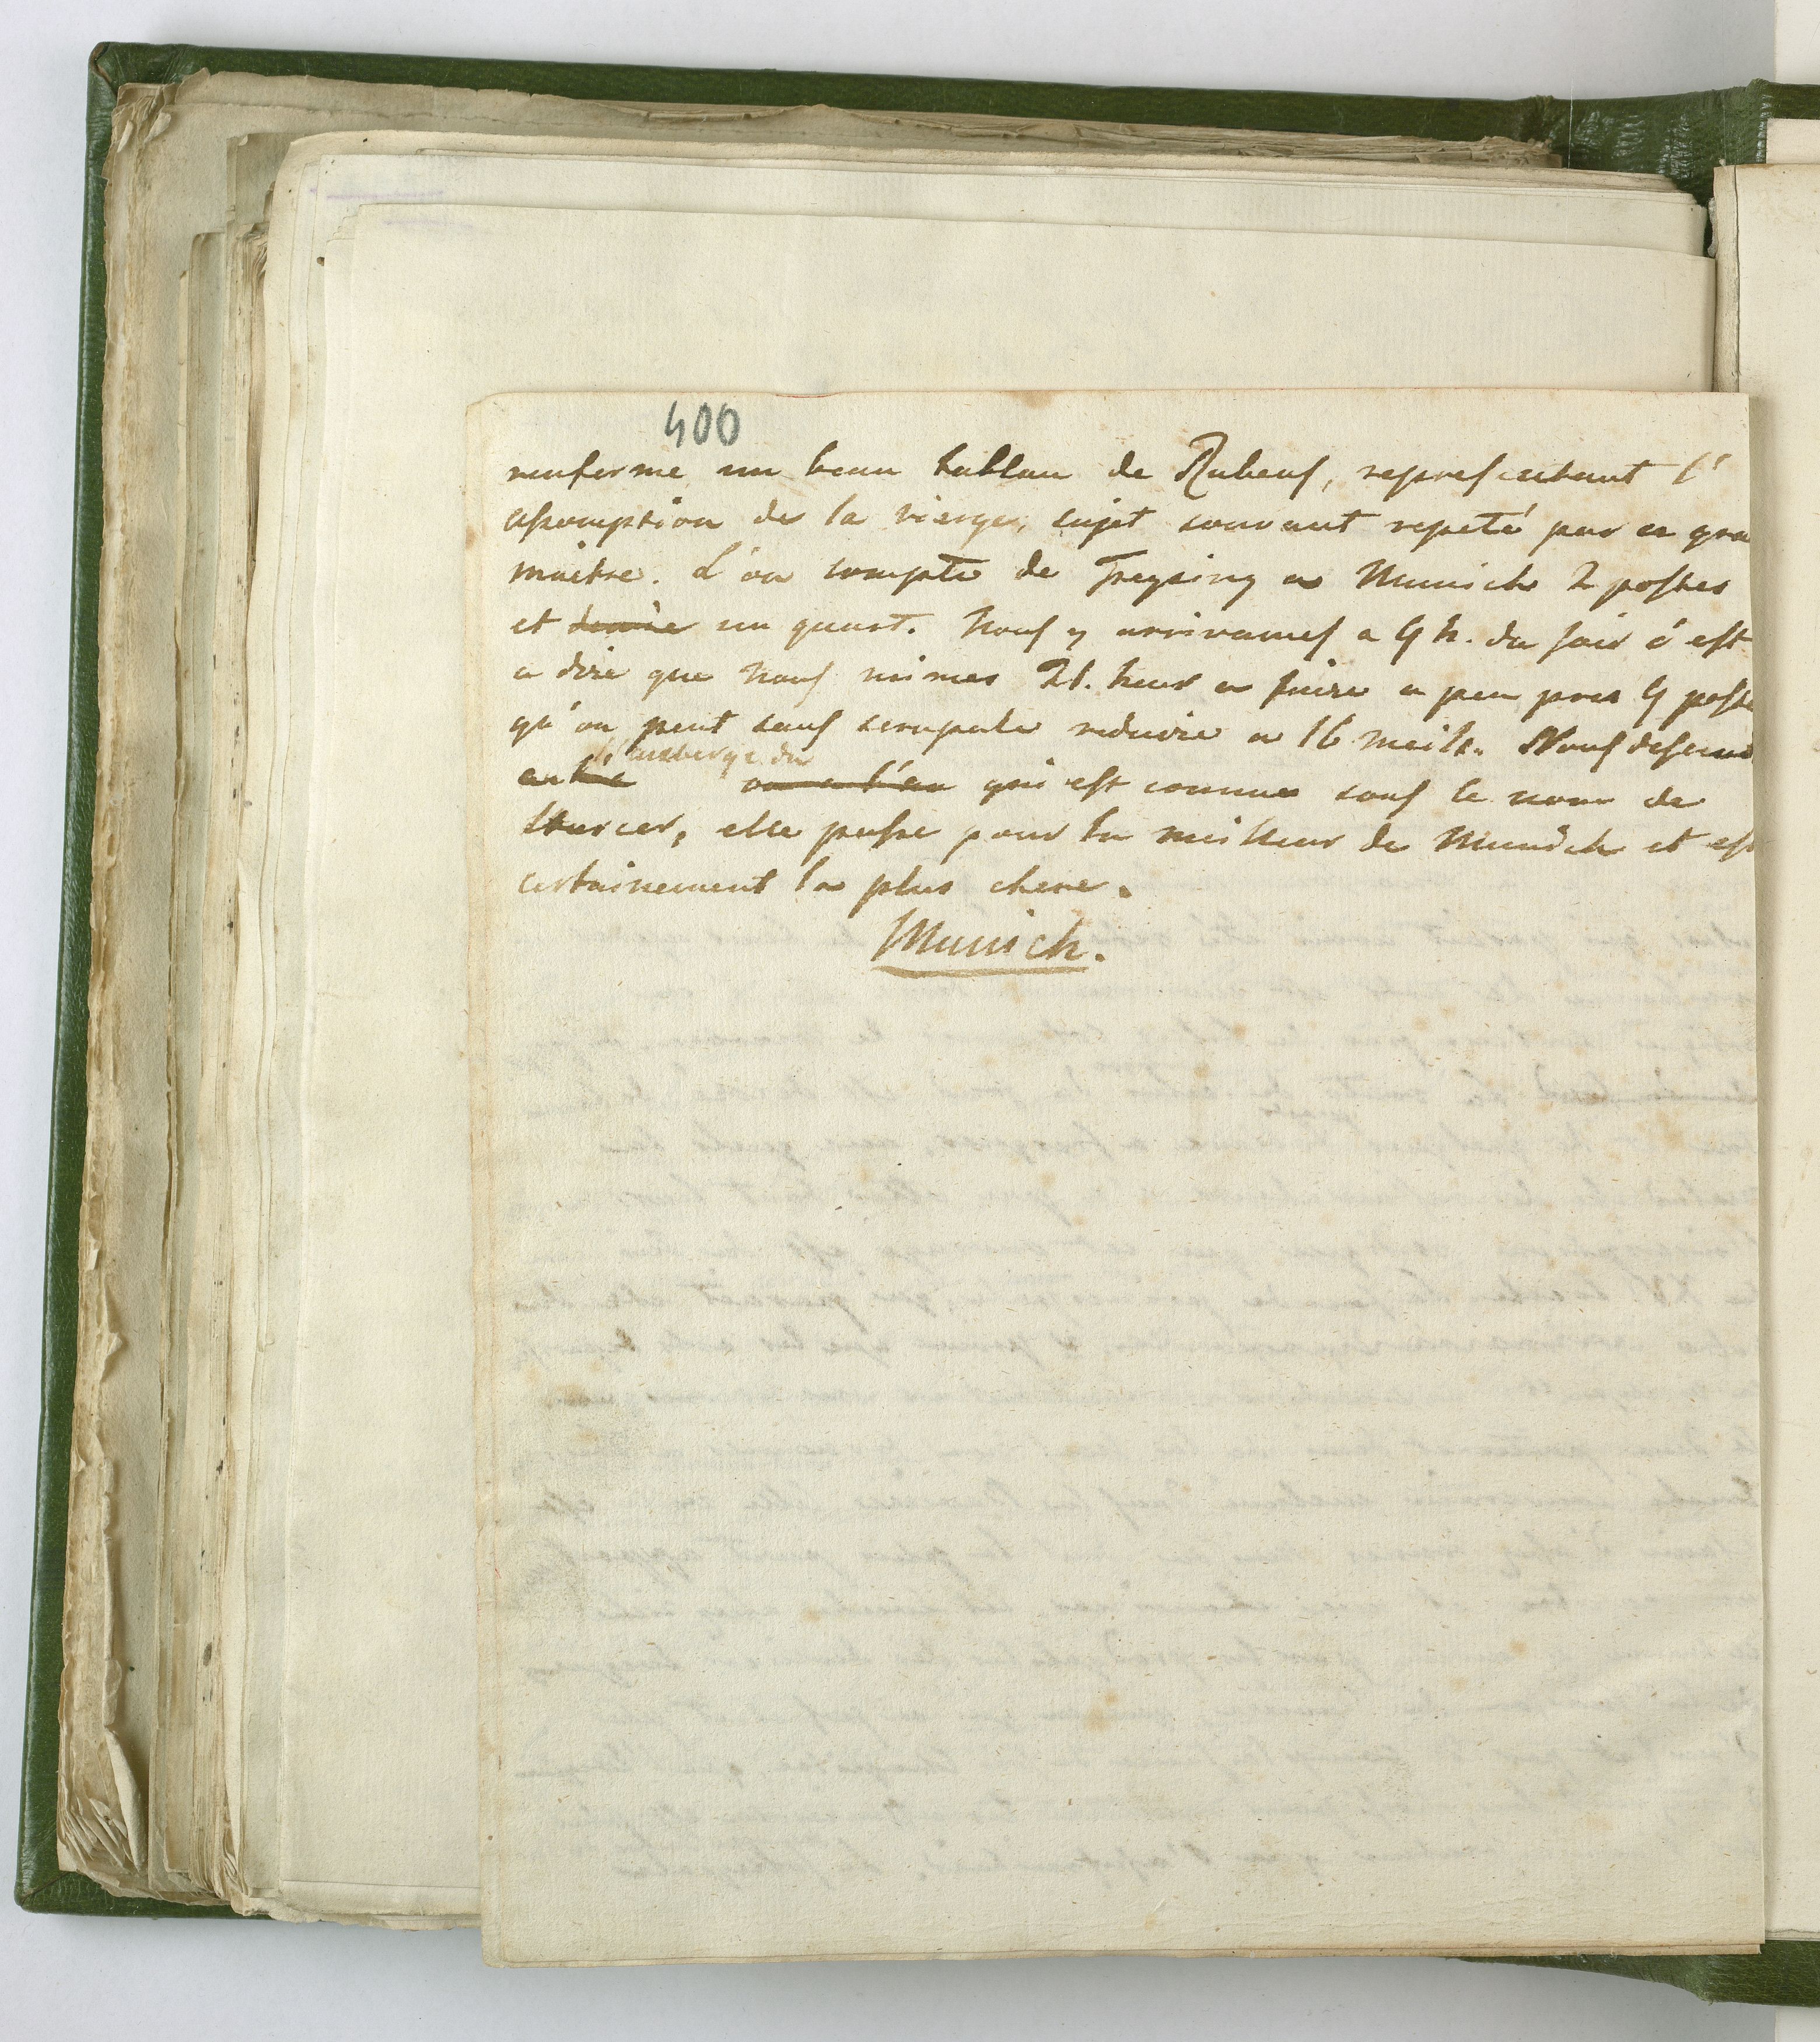 400
renferme un beau tablau de Rubens, representant l'
assomption de la vierge, sujet souvant repeté par ce gra
maitre. L'on compte de Freysing a Munich 2 postes
et demie un quart. Nous y arrivames a 9 h. du soir c'est
a dire que nous mimes 21. heur a faire a peu pres 9 poste
qu'on peut sans scrupule reduire a 16 meile. Nous desend
l'auxberge du
qui est connue sous le nom de
elle passe pour la meilleur de Munich et est
certainement la plus chere.
Munich.